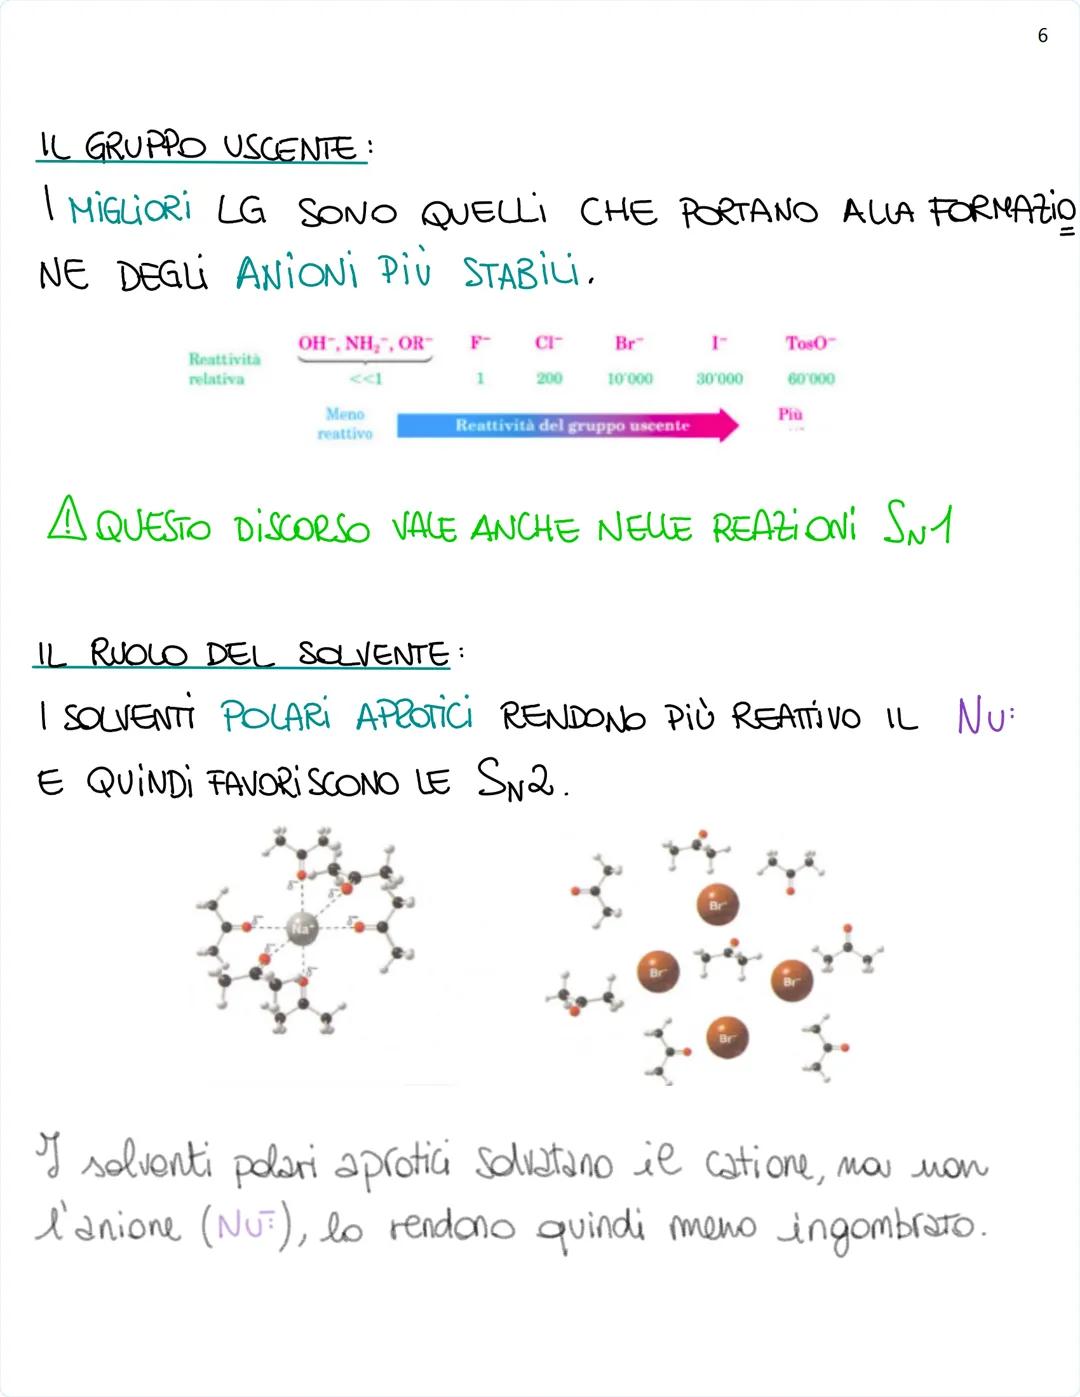 6
IL GRUPPO USCENTE:
I MIGLIORI LG SONO QUELLI CHE PORTANO ALLA FORMAZIO
NE DEGLI ANIONI PIÙ STABILI.
OH⁻, NH₂⁻, OR⁻ F⁻ Cl⁻ Br⁻ I⁻ TosO⁻
Reattività relativa <<1 1 200 10'000 30'000 60'000
Meno reattivo Reattività del gruppo uscente Più
⚠ QUESTO DISCORSO VALE ANCHE NELLE REAZIONI SN1
IL RUOLO DEL SOLVENTE:
I SOLVENTI POLARI APROTICI RENDONO PIÙ REATTIVO IL Nu:
E QUINDI FAVORISCONO LE SN2.
δ⁻ δ⁻ δ⁻ Na⁺ δ⁻ δ⁻ δ⁻
Br⁻
Br⁻
Br⁻
Br⁻
I solventi polari aprotici solvatano il catione, ma non
l'anione (Nu:⁻), lo rendono quindi meno ingombrato.